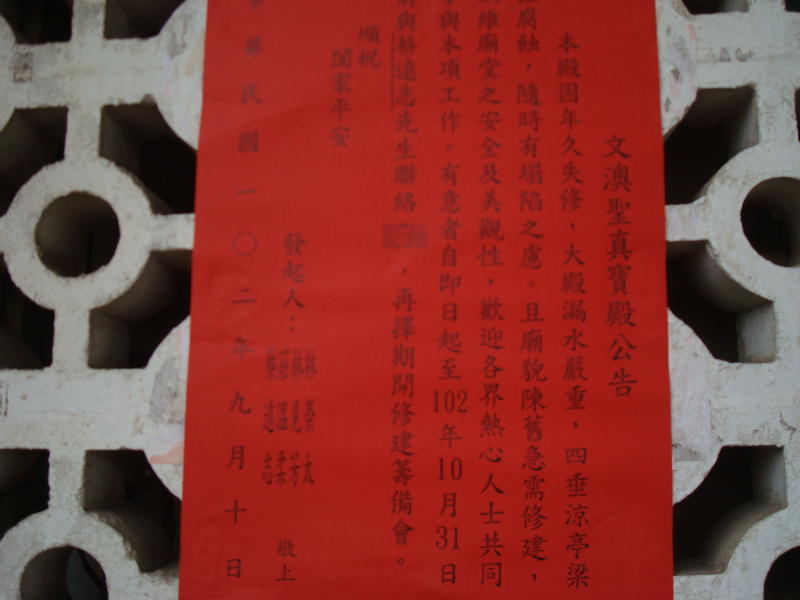 文澳聖真寶殿公告
本殿因年久失修，大殿漏水嚴重，四垂涼亭梁
腐蝕，隨時有塌陷之慮。且廟貌陳舊急需修建，
維廟堂之安全及美觀性，歡迎各界熱心人士共同
與本項工作。有意者自即日起至102年10月31日
與蔡遠志先生聯絡，再擇期開修建籌備會。
順祝
闔家平安
發起人：
林榮太
林見芳
莊溫柔
蔡遠志
敬上
華民國一〇二年九月十日